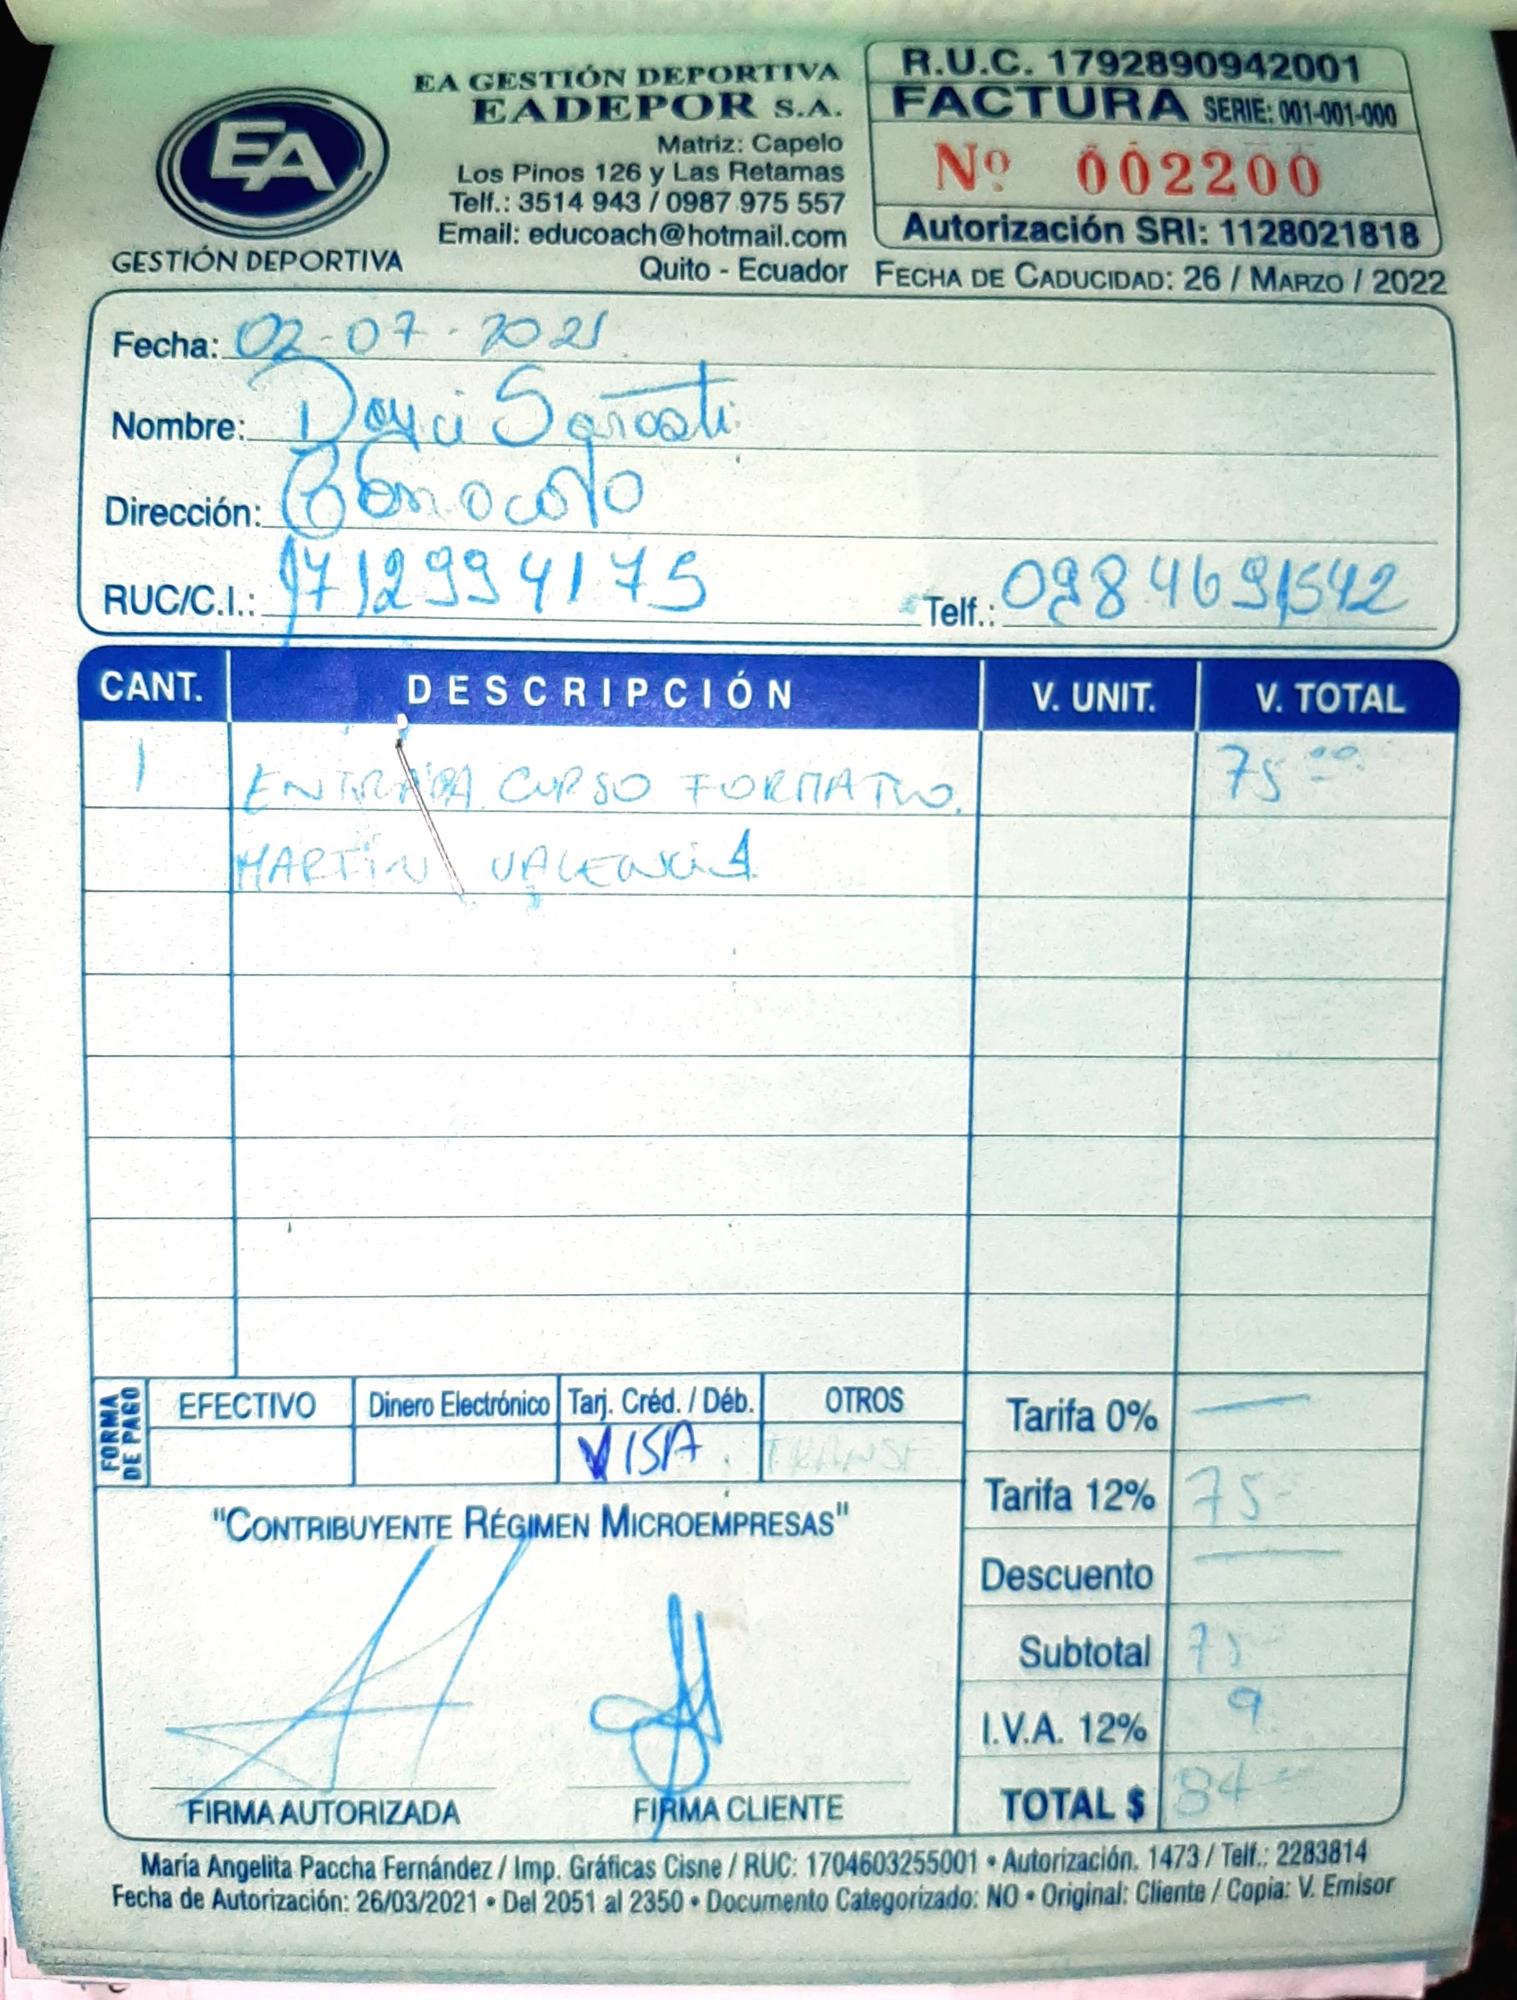 EA
GESTIÓN DEPORTIVA
EA GESTIÓN DEPORTIVA
EADEPOR S.A.
Matriz: Capelo
Los Pinos 126 y Las Retamas
Telf.: 3514 943 / 0987 975 557
Email: educoach@hotmail.com
Quito - Ecuador
R.U.C. 1792890942001
FACTURA SERIE: 001-001-000
Nº 002200
Autorización SRI: 1128021818
FECHA DE CADUCIDAD: 26 / MARZO / 2022
Fecha: 02-07-2021
Nombre: Sarasti
Dirección: Conocoto
RUC/C.I.: 1712994175 Telf.: 0984691542
CANT. DESCRIPCIÓN V. UNIT. V. TOTAL
1 ENTRADA CURSO FORMATIVO. 75 00
MARTIN VALENCIA
FORMA DE PAGO
EFECTIVO Dinero Electrónico Tarj. Créd. / Déb. OTROS
VISA TRANSF
Tarifa 0% —
Tarifa 12% 75-
Descuento —
Subtotal 75-
I.V.A. 12% 9
TOTAL $ 84-
"CONTRIBUYENTE RÉGIMEN MICROEMPRESAS"
FIRMA AUTORIZADA FIRMA CLIENTE
María Angelita Paccha Fernández / Imp. Gráficas Cisne / RUC: 1704603255001 • Autorización. 1473 / Telf.: 2283814
Fecha de Autorización: 26/03/2021 • Del 2051 al 2350 • Documento Categorizado: NO • Original: Cliente / Copia: V. Emisor